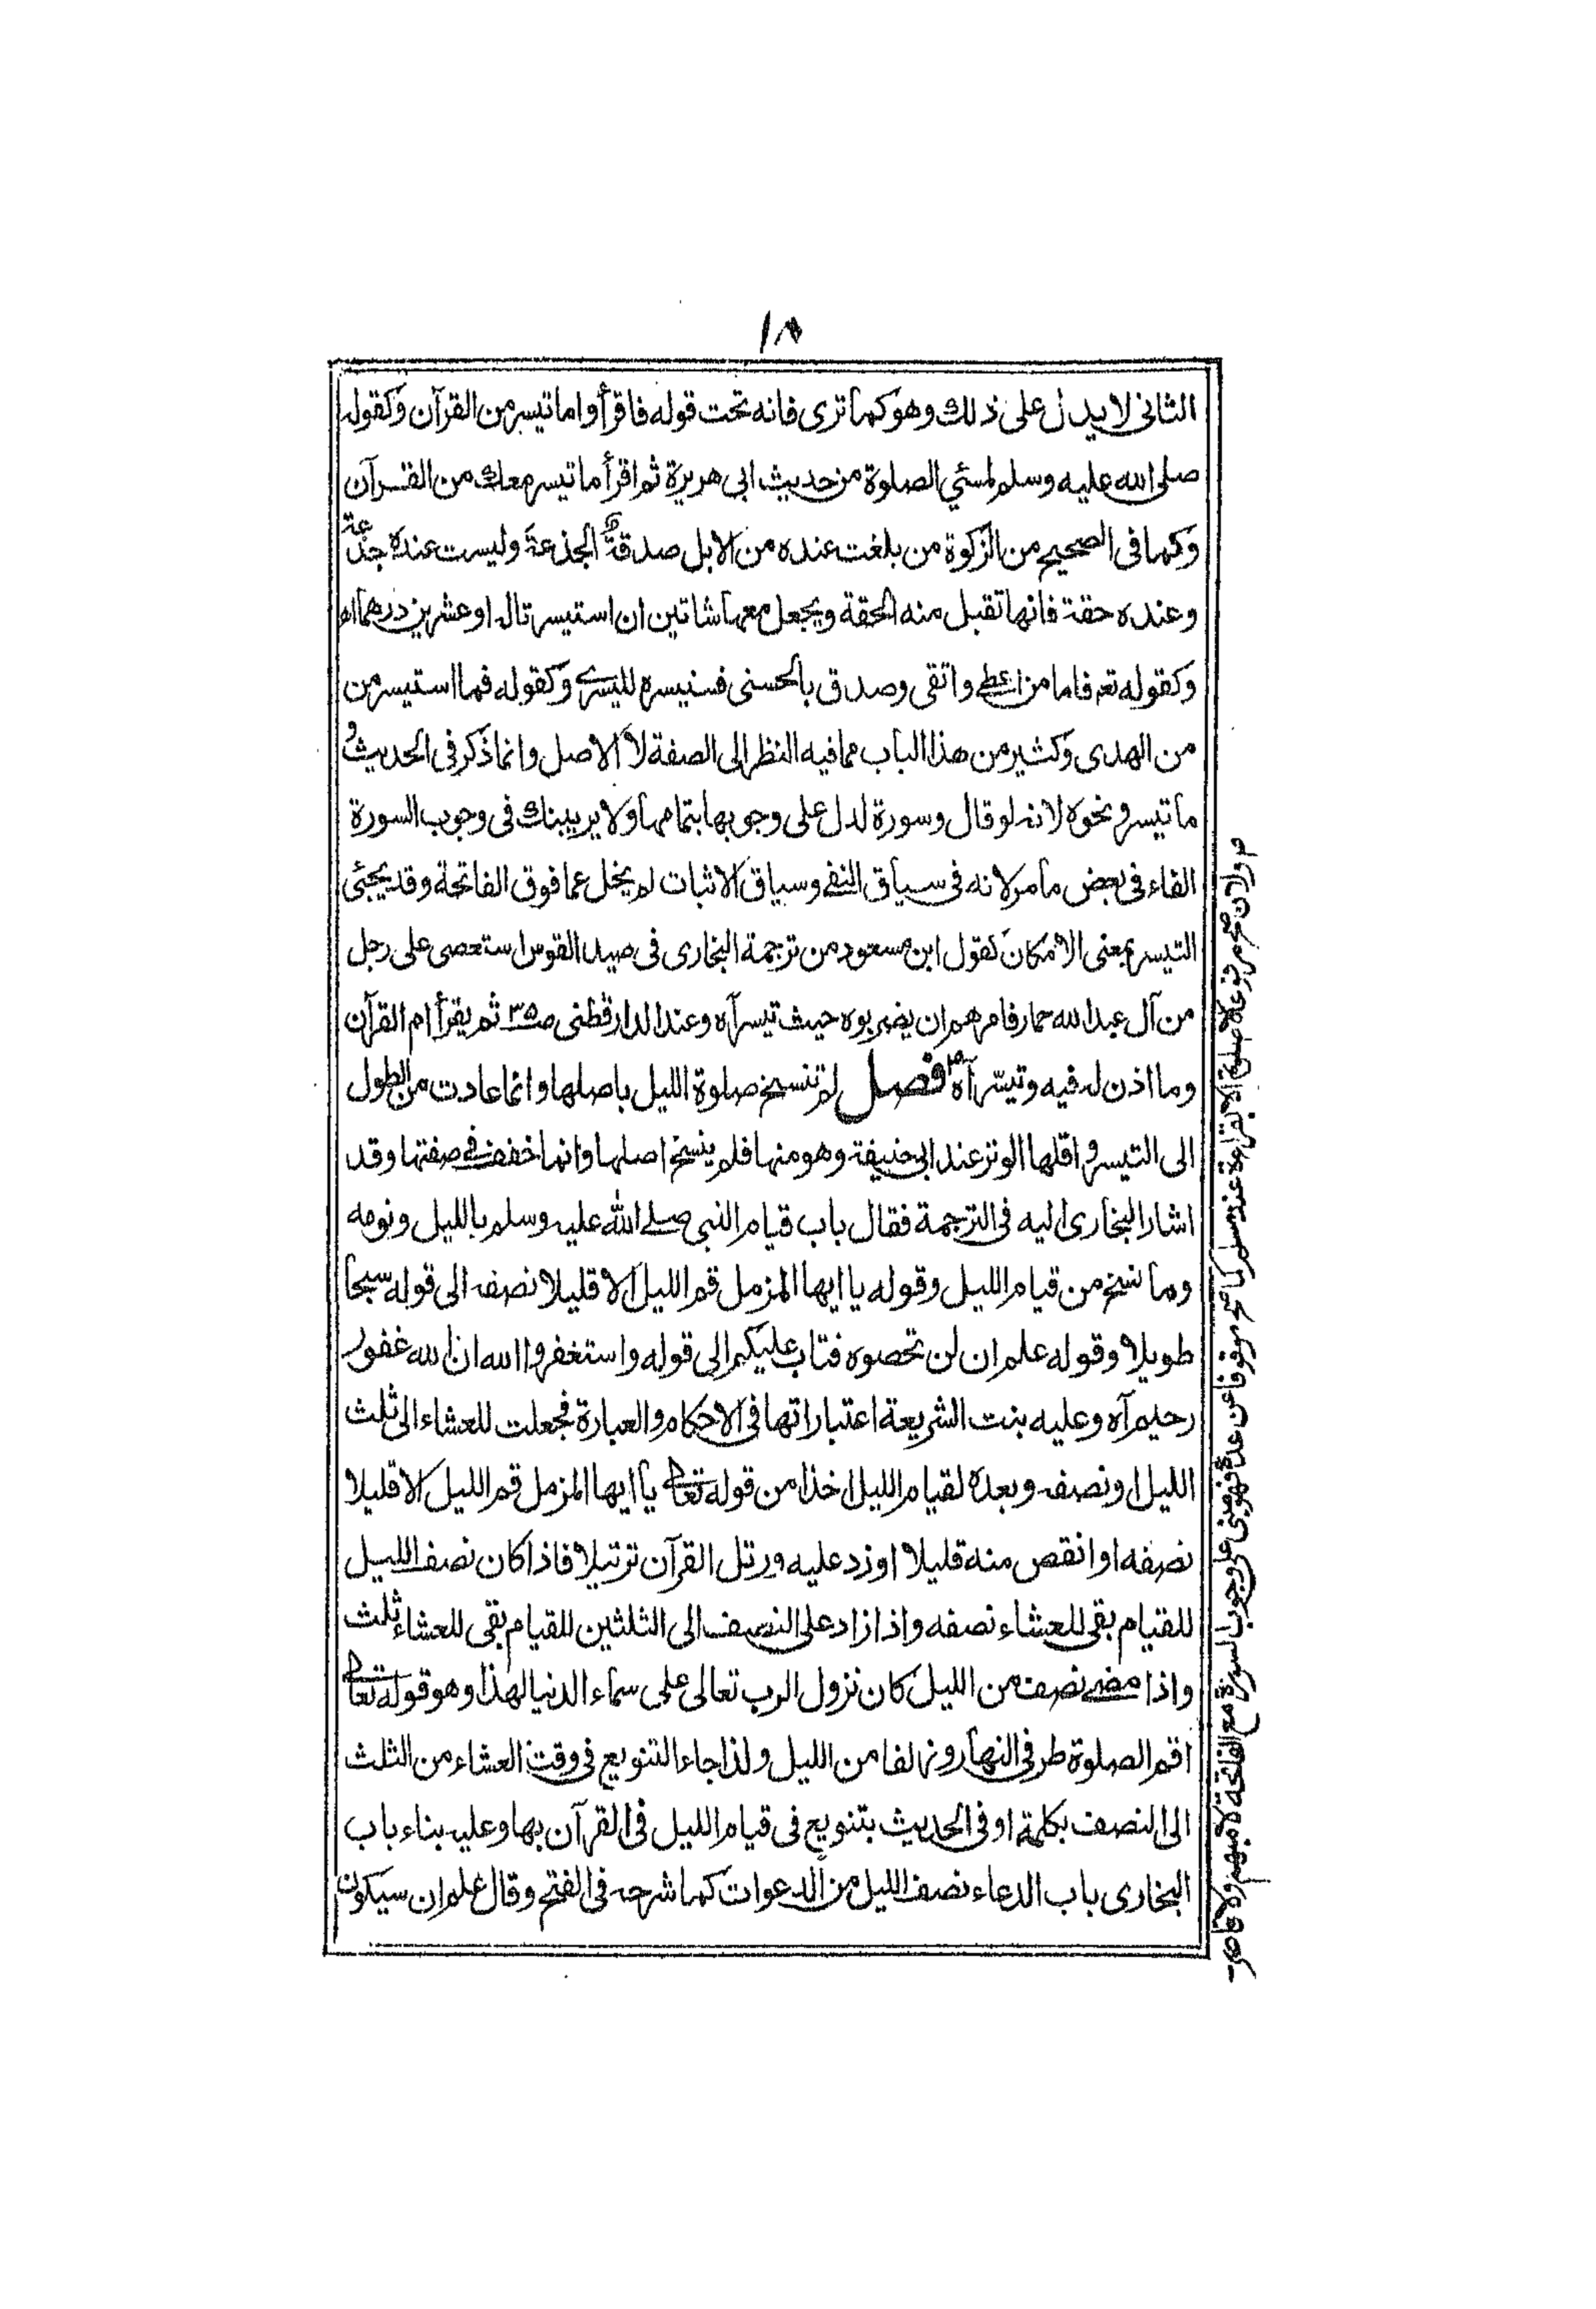 ١٨
الثانی لا یدل علی ذلك وهو کما تری فانه تحت قوله فاقرأوا ما تیسر من القرآن وکقوله
صلی الله علیه وسلم لمسئی الصلوة من حدیث ابی هریرة ثم اقرأ ما تیسر معك من القرآن
وکما فی الصحیح من الزکوة من بلغت عنده من الابل صدقة الجذعة ولیست عنده جذعة
وعنده حقة فانها تقبل منه الحقة ویجعل معها شاتین ان استیسرتا له او عشرین درهما اه
وکقوله تعـ فاما من اعطے واتقی وصدق بالحسنی فسنیسره للیسرے وکقوله فما استیسر من
من الهدی وکثیر من هذا الباب مما فیه النظر الی الصفة لا الاصل وانما ذکر فی الحدیث و
ما تیسر و نحوه لانه لو قال وسورة لدل علی وجوبها بتمامها ولا یریبنك فی وجوب السورة
الفاء فی بعض ما مر لانه فی سیاق النفے وسیاق الاثبات لم یخل عما فوق الفاتحة وقد یجئی
التیسر بمعنی الامکان کقول ابن مسعود من ترجمة البخاری فی صید القوس استعصی علی رجل
من آل عبدالله حمار فامرهم ان یضربوه حیث تیسر آه وعند الدارقطنی صـ٣٥ ثم یقرأ ام القرآن
وما اذن له فیه وتیسّر آه فصل لم تنسخ صلوة اللیل باصلها وانما عادت من الطول
الی التیسر و اقلها الوتر عند ابی حنیفة وهو منها فلم ینسخ اصلها وانما خفف فے صفتها وقد
اشار البخاری الیه فی الترجمة فقال باب قیام النبی صلے الله علیه وسلم باللیل ونومه
وما نسخ من قیام اللیل وقوله یا ایها المزمل قم اللیل الا قلیلا نصفه الی قوله سبحا
طویلا وقوله علم ان لن تحصوه فتاب علیکم الی قوله واستغفروا الله ان الله غفور
رحیم آه وعلیه بنت الشریعة اعتباراتها فی الاحکام والعبارة فجعلت للعشاء الی ثلث
اللیل او نصفه وبعده لقیام اللیل اخذا من قوله تعالے یا ایها المزمل قم اللیل الا قلیلا
نصفه او انقص منه قلیلا او زد علیه ورتل القرآن ترتیلا فاذا کان نصف اللیل
للقیام بقی للعشاء نصفه واذا زاد علی النصف الی الثلثین للقیام بقی للعشاء ثلث
واذا مضے نصف من اللیل کان نزول الرب تعالی علی سماء الدنیا لهذا وهو قوله تعالے
اقم الصلوة طرفی النهار وزلفا من اللیل ولذا جاء التنویع فی وقت العشاء من الثلث
الی النصف بکلمة او فی الحدیث بتنویع فی قیام اللیل فی القرآن بها وعلیه بناء باب
البخاری باب الدعاء نصف اللیل من الدعوات کما شرحه فی الفتح وقال علم ان سیکون
ولان صح مرفوعا لا صلوة الا بقراءة عند مسلم کما صح موقوفا عن عدة فهو مبنی علی وجوب السورة مع الفاتحة لا مبهم ولا قاصر